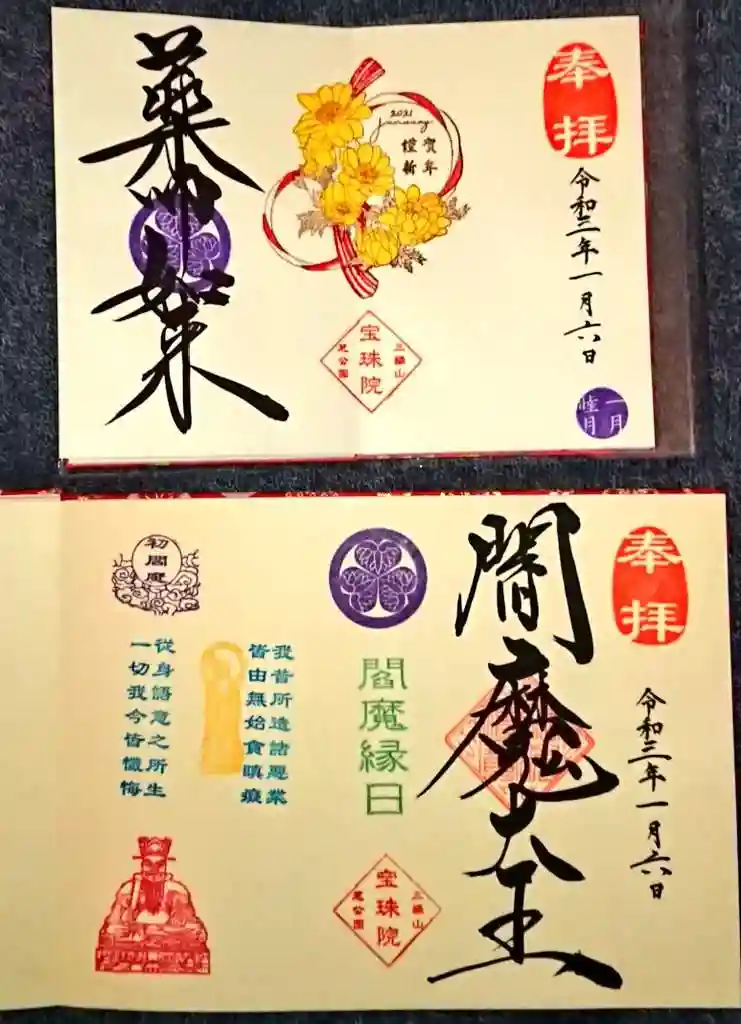 奉拝
令和三年一月六日
一月
睦月
2021
January
賀年
謹新
三縁山
宝珠院
芝公園
薬師如来
奉拝
令和三年一月六日
閻魔大王
閻魔縁日
三縁山
宝珠院
芝公園
我昔所造諸悪業
皆由無始貪瞋癡
從身語意之所生
一切我今皆懺悔
初閻魔